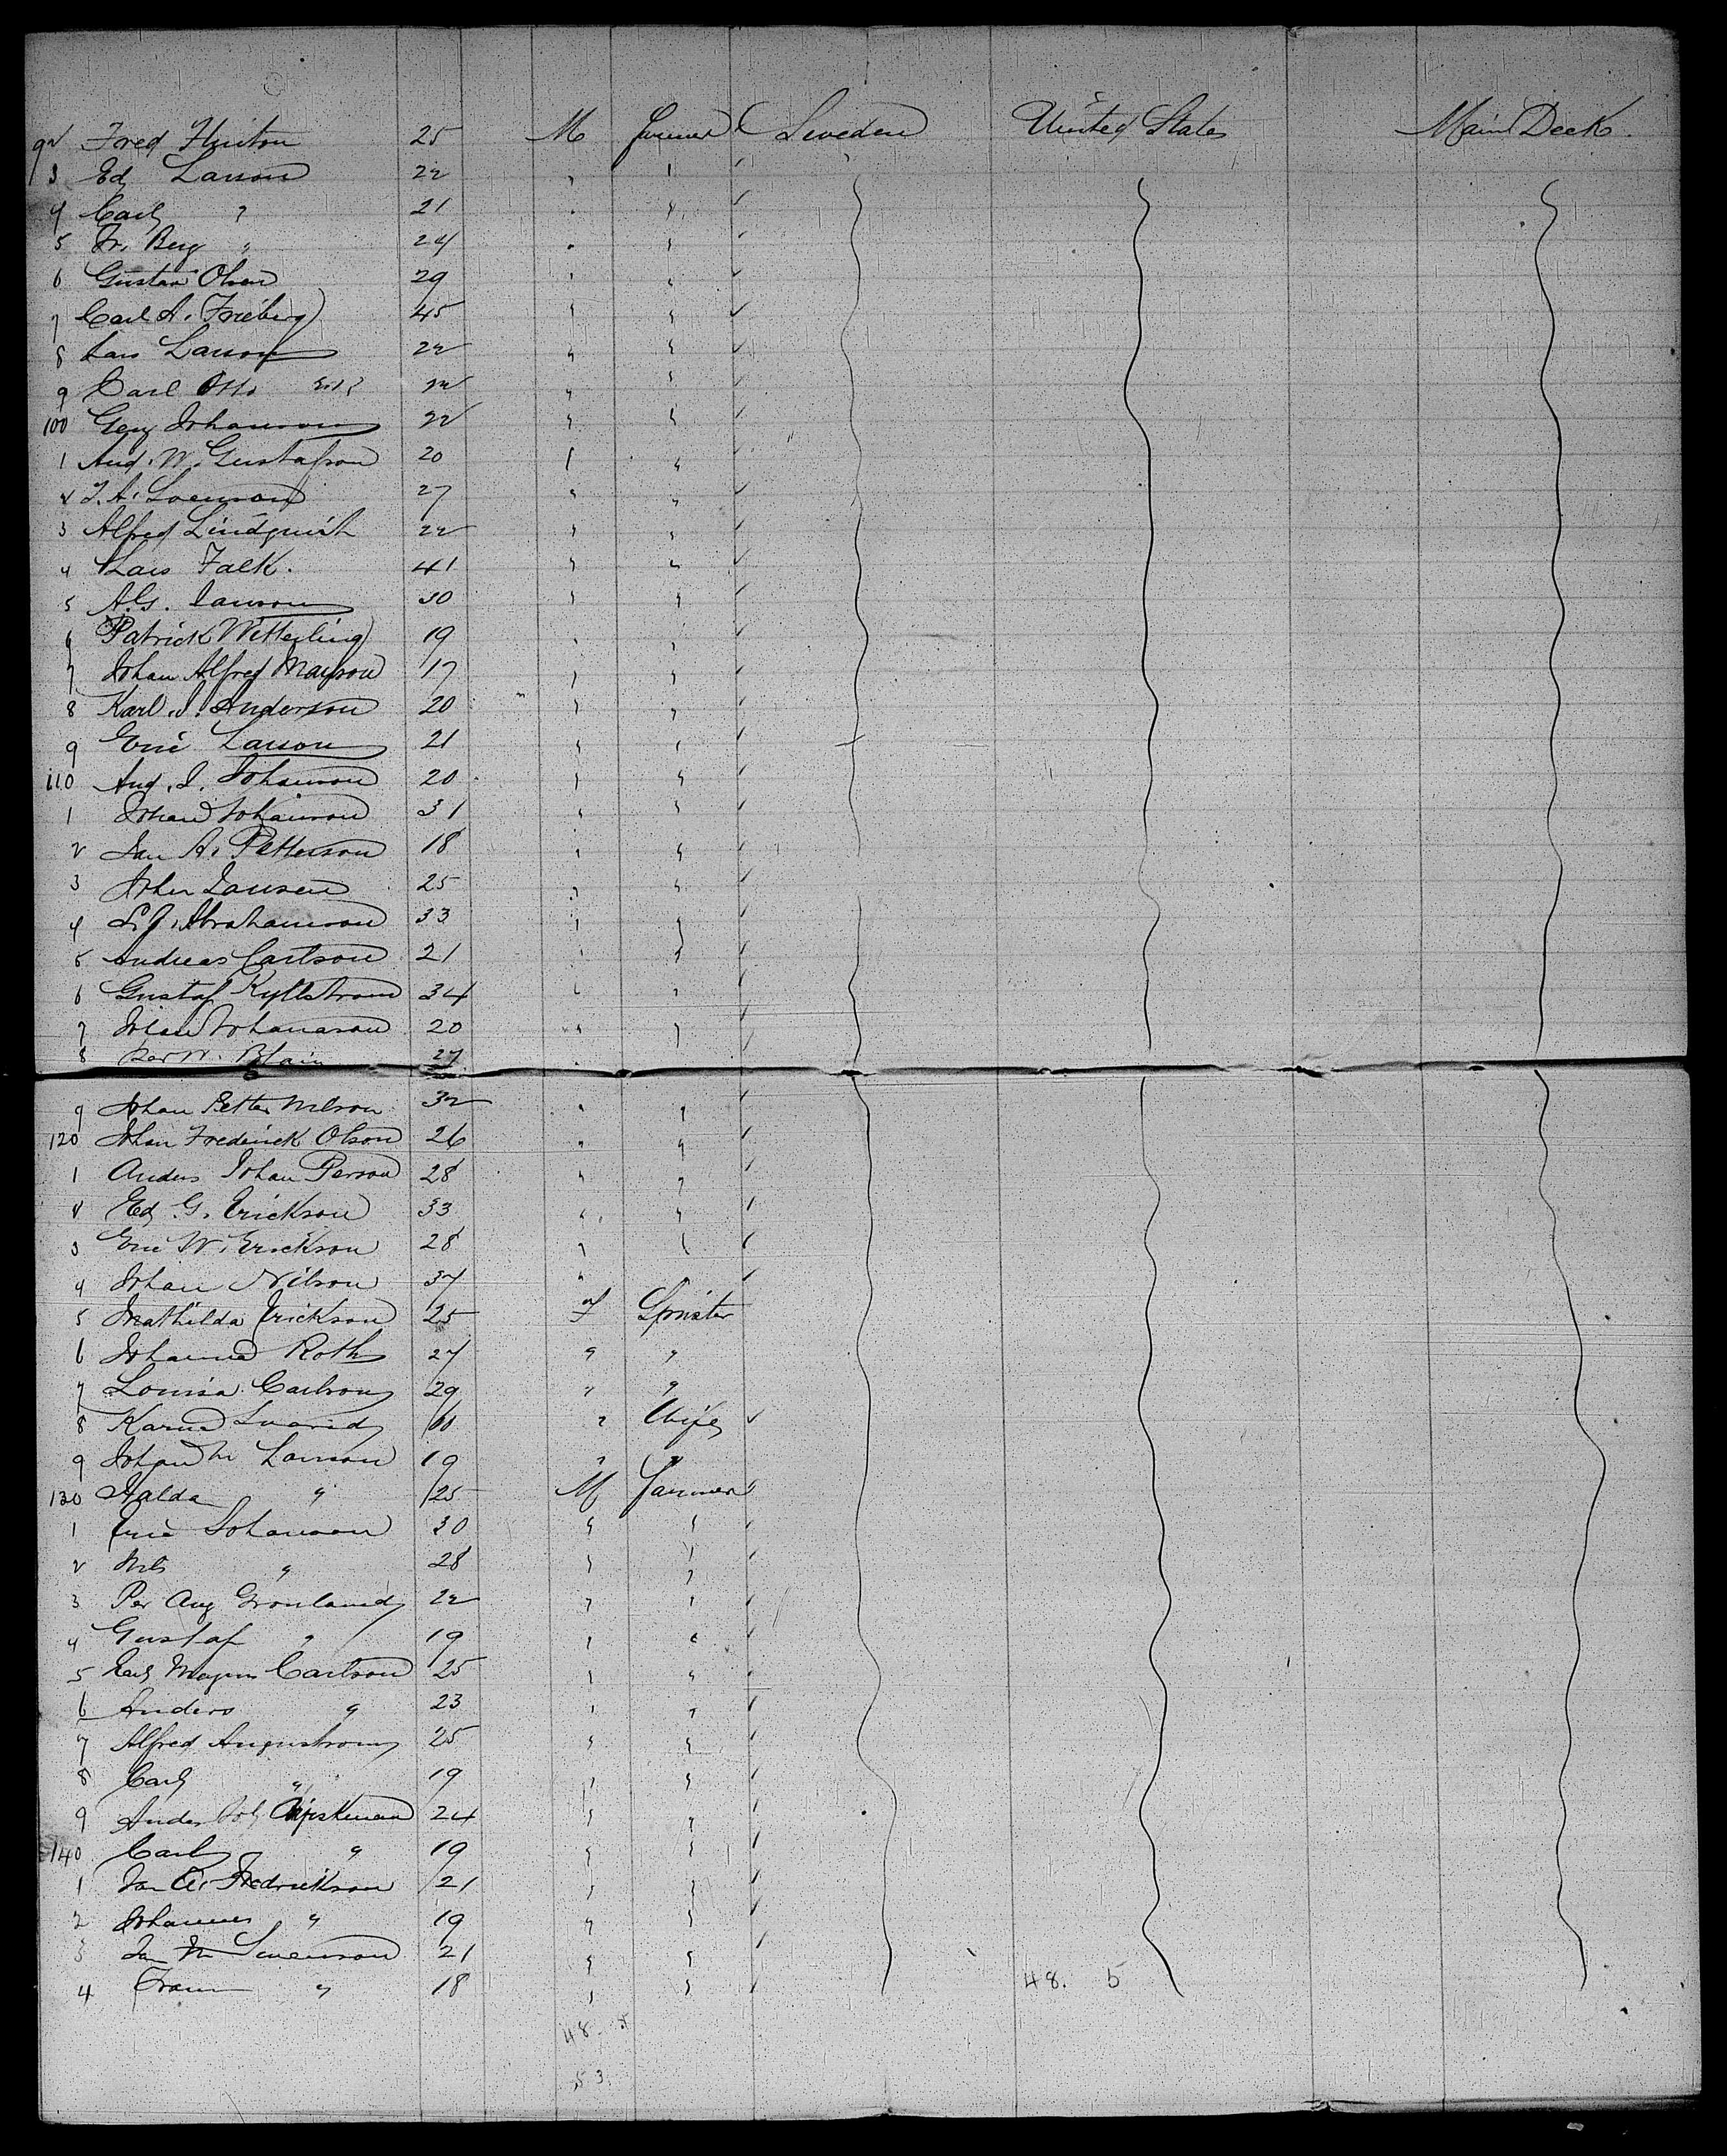 92 Fred Huiton 25 M Farmer Sweden United States Main Deck.
3 Ed Larson 22 " "
4 Carl " 21 " "
5 Fr. Berg " 24 " "
6 Gustav Olsen 29 " "
7 Carl A. Frieberg 45 " "
8 Lars Larson 22 " "
9 Carl Otto 22 " "
100 Geng Johanson 22 " "
1 Aug. W. Gustafson 20 " "
2 J. A. Svenson 27 " "
3 Alfred Lindquist 22 " "
4 Lars Falk. 41 " "
5 A. G. Janson 30 " "
6 Patrick Witterling 19 " "
7 Johan Alfred Mayson 17 " "
8 Karl J. Anderson 20 " "
9 Eric Larson 21 " "
110 Aug. J. Johanson 20 " "
1 Johan Johanson 31 " "
2 Jan A. Petterson 18 " "
3 John Jansen 25 " "
4 S. J. Abrahamson 33 " "
5 Andreas Carlson 21 " "
6 Gustaf Kyllstrom 34 " "
7 Johan Johanason 20 " "
8 W. Blain 27 "
9 Johan Petter Nelson 32 " "
120 Johan Frederick Olson 26 " "
1 Anders Johan Person 28 " "
2 Ed G. Erickson 33 " "
3 Eric W. Erickson 28 " "
4 Johan Nilson 37 "
5 Mathilda Erickson 25 F Spinster
6 Johanna Roth 27 " "
7 Louisa Carlson 29 " "
8 Karna 60 " Wife
9 Johan M Larson 19 " "
130 Halda " 25 M Farmer
1 Eric Johanson 30 " "
2 Nils " 28 " "
3 Per Aug Gronland 22 " "
4 Gustaf " 19 " "
5 Carl Magnus Carlson 25 " "
6 Anders " 23 " "
7 Alfred Angustrom 25 " "
8 Carl " 19 " "
9 Anders Joh 24 " "
140 Carl " 19 " "
1 Jan A. Fredrickson 21 " "
2 Johannes " 19 " "
3 Jan M Swenson 21 " "
4 Frans " 18 " " 48. 5
48 5
53